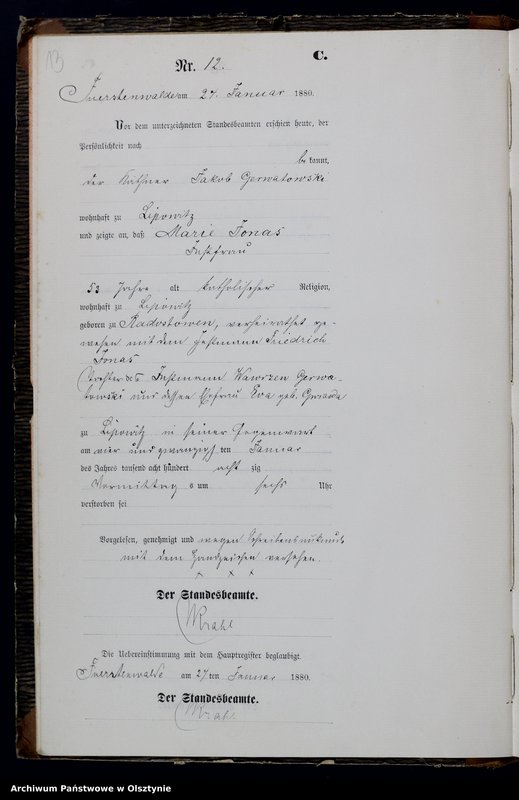 13
C.
Nr. 12.
Fuerstenwalde am 27. Januar 1880.
Vor dem unterzeichneten Standesbeamten erschien heute, der
Persönlichkeit nach
be kannt,
der Käthner Jakob Gerwatowski
wohnhaft zu Lipowitz
und zeigte an, daß Marie Jonas
Instfrau
Jahre alt katholischer Religion,
wohnhaft zu Lipowitz
geboren zu Radostowen, verheirathet ge-
wesen mit dem Instmann Friedrich
Jonas
Tochter des Instmann Wawrzen Gerwa-
towski und dessen Ehefrau Eva geb.
zu Lipowitz in seiner Gegenwart
am vier und zwanzig ten Januar
des Jahres tausend acht hundert acht zig
Vormittag s um sechs Uhr
verstorben sei
Vorgelesen, genehmigt und wegen Schreibensunkunde
mit dem Handzeichen versehen.
x x x
Der Standesbeamte.
Krahl
Die Uebereinstimmung mit dem Hauptregister beglaubigt.
Fuerstenwalde am 27 ten Januar 1880.
Der Standesbeamte.
Krahl
Archiwum Państwowe w Olsztynie